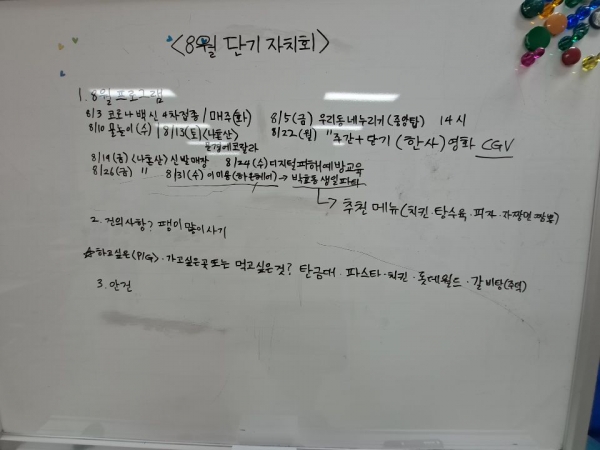 <8월 단기 자치회>
1. 8월 프로그램
8/3 코로나 백신 4차접종 / 매주(화) 8/5(금) 우리동네누리기(중앙탑) 14시
8/10 물놀이(수) / 8/13(토)<나눔산> 8/22(월) "주간+단기(한사)영화 CGV
문경에코랄라
8/19(금)<나눔산> 신발매장 8/24(수)디지털피해예방교육
8/26(금) " 8/31(수) 이미용(하은헤어) → 박효동생일파티
→ 추천 메뉴(치킨·탕수육·피자·자짱면 짬뽕)
2. 건의사항? 팽이 많이 사기
☆하고싶은<PIG>·가고싶은곳또는 먹고싶은것? 탄금대·파스타·치킨·롯데월드·갈비탕(주덕)
3. 안건